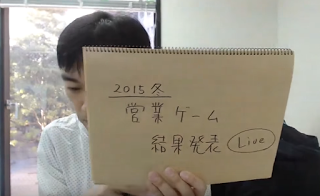 2015 冬
営業ゲーム
結果発表 Live